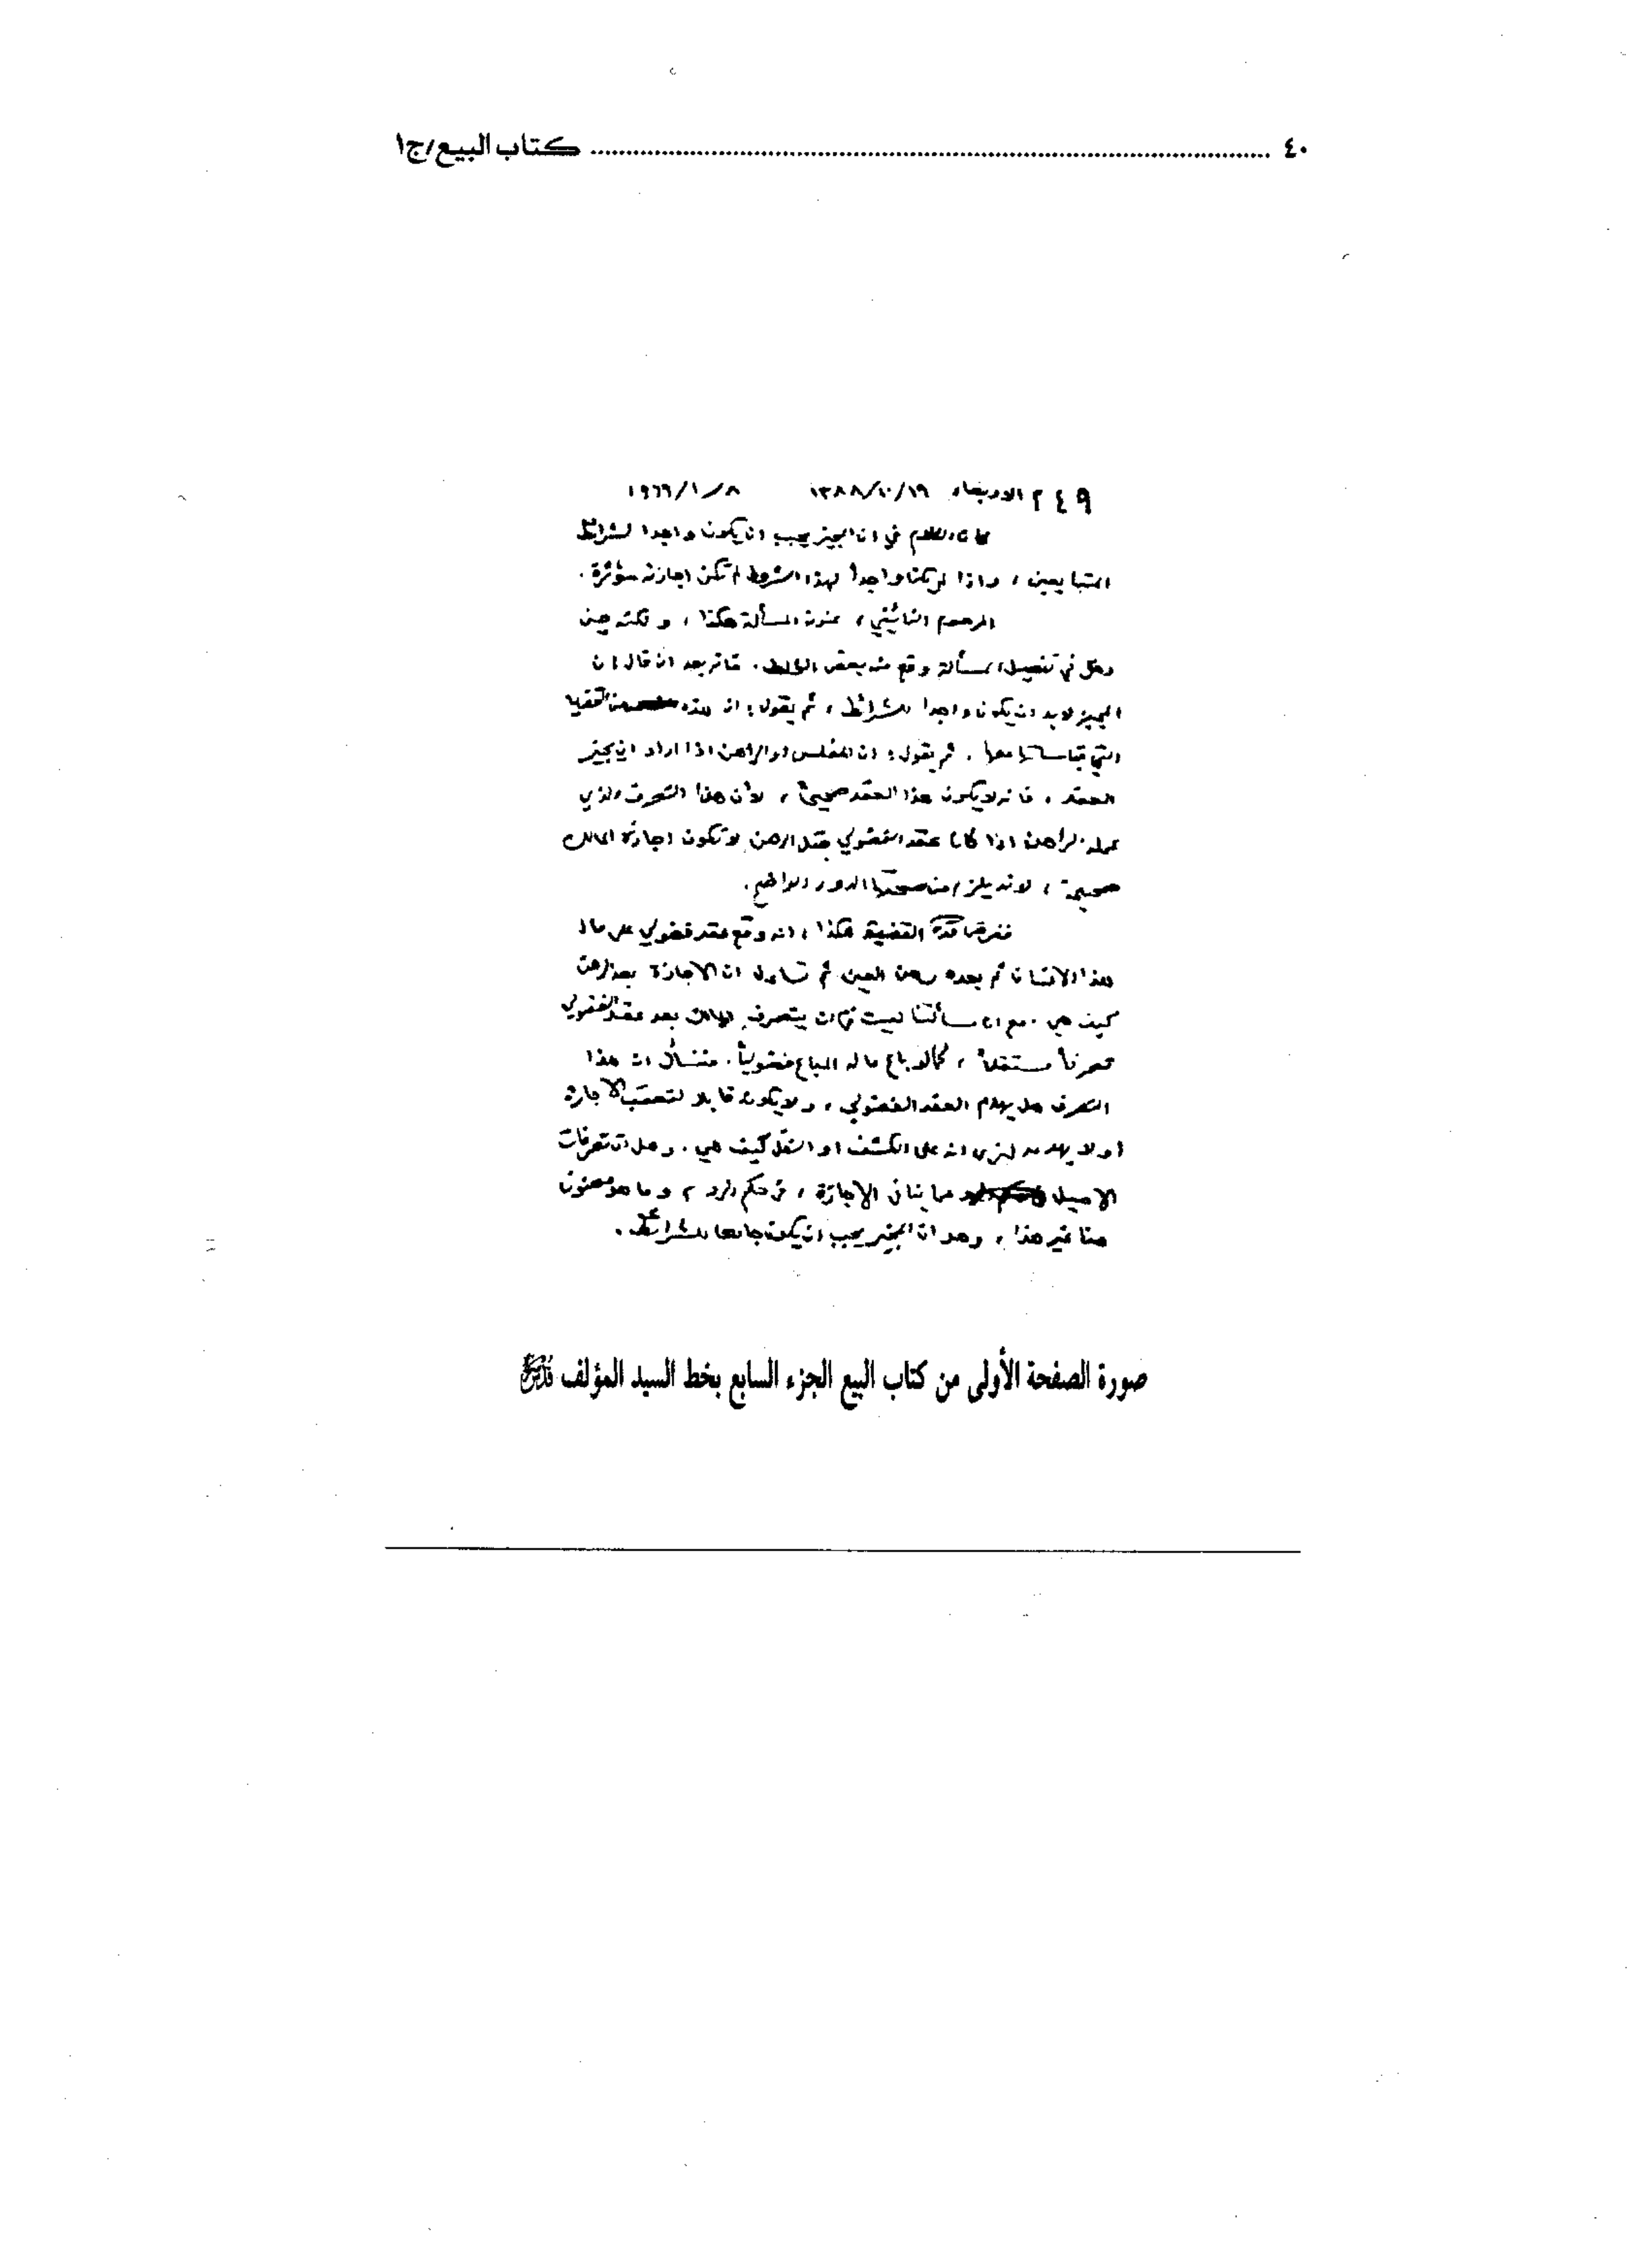 ٤٠ ........ كتاب البيع/ج١
٢٤٩ م الاربعاء ١٣٨٨/١٠/١٩ ١٩٦٦/١/٨
كان الكلام في ان المجيز يجب ان يكون واجدا لشرائط
المتبايعين ، واذا لم يكن واجداً لهذه الشروط لم تكن اجازته مؤثرة .
المرحوم النائيني ، عنون المسألة هكذا ، ولكنه حين
دخل في تفصيل المسألة وقع منه بعض الخلط . فانه بعد ان قال ان
المجيز لابد ان يكون واجدا للشرائط ، ثم يقول : ان هذه من القضايا
التي قياساتها معها . ثم يقول : ان المفلس او الراهن اذا اراد ان يجيز
العقد ، فانه لا يكون هذا العقد صحيحاً ، لأن هذا التصرف الذي
عمله الراهن اذا كان عقد الفضولي قبل الرهن لا تكون اجازة المالك
صحيحة ، لانه يلزم من صحتها الدور الواضح .
ففرض القضية هكذا ، انه وقع عقد فضولي على مال
هذا الانسان ثم بعده رهن العين ثم تساءل ان الاجازة بعد الرهن
كيف هي . مع ان مسألتنا ليست في ان يتصرف المالك بعد عقد الفضولي
تصرفاً مستقلاً ، كما لو باع ماله المباع فضولياً . فنسأل ان هذا
التصرف هل يهدم العقد الفضولي ، ولا يكون قابلا لتعقب الاجازة
او لا يهدمه لنرى انه على الكشف او النقل كيف هي . وهل ان تصرفات
الاصيل مما ينافي الاجازة ، في حكم الرد ، وما هو معنون
هنا غير هذا ، وهو ان المجيز يجب ان يكون جامعا للشرائط .
صورة الصفحة الأولى من كتاب البيع الجزء السابع بخط السيد المؤلف